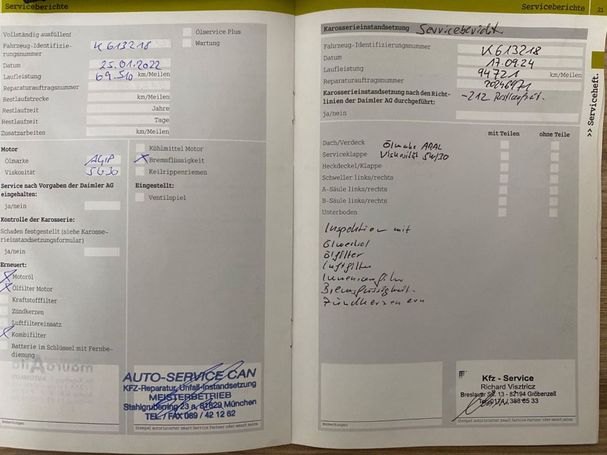 Serviceberichte
Vollständig ausfüllen!
Fahrzeug-Identifizie-
rungsnummer K613218
Datum 25.01.2022
Laufleistung 69.510 km/Meilen
Reparaturauftragsnummer
Restlaufstrecke km/Meilen
Restlaufzeit Jahre
Restlaufzeit Tage
Zusatzarbeiten km/Meilen
Ölservice Plus
Wartung
Motor
Ölmarke AGIP
Viskosität 5W30
Service nach Vorgaben der Daimler AG
eingehalten:
ja/nein
Kontrolle der Karosserie:
Schaden festgestellt (siehe Karosse-
rieinstandsetzungsformular)
ja/nein
Erneuert:
Motoröl
Ölfilter Motor
Kraftstofffilter
Zündkerzen
Luftfiltereinsatz
Kombifilter
Batterie im Schlüssel mit Fernbe-
dienung
Kühlmittel Motor
Bremsflüssigkeit
Keilrippenriemen
Eingestellt:
Ventilspiel
AUTO-SERVICE CAN
KFZ-Reparatur, Unfall-Instandsetzung
MEISTERBETRIEB
Stahlgruberring 23 a, 81829 München
TEL./FAX 089 / 42 12 62
Serviceberichte 21
Karosserieinstandsetzung Servicebericht
Fahrzeug-Identifizierungsnummer K613218
Datum 17.09.24
Laufleistung 94721 km/Meilen
Reparaturauftragsnummer
Karosserieinstandsetzung nach den Richt-
linien der Daimler AG durchgeführt:
ja/nein
mit Teilen ohne Teile
Dach/Verdeck Ölmarke ARAL
Serviceklappe Viskosität 5W30
Heckdeckel/Klappe
Schweller links/rechts
A-Säule links/rechts
B-Säule links/rechts
Unterboden
Inspektion mit
Ölwechsel
Ölfilter
Luftfilter
Innenraumfilter
Bremsflüssigkeit
Zündkerzen ern
>> Serviceheft.
Kfz - Service
Richard Visztricz
Breslauer Str. 13 - 82194 Gröbenzell